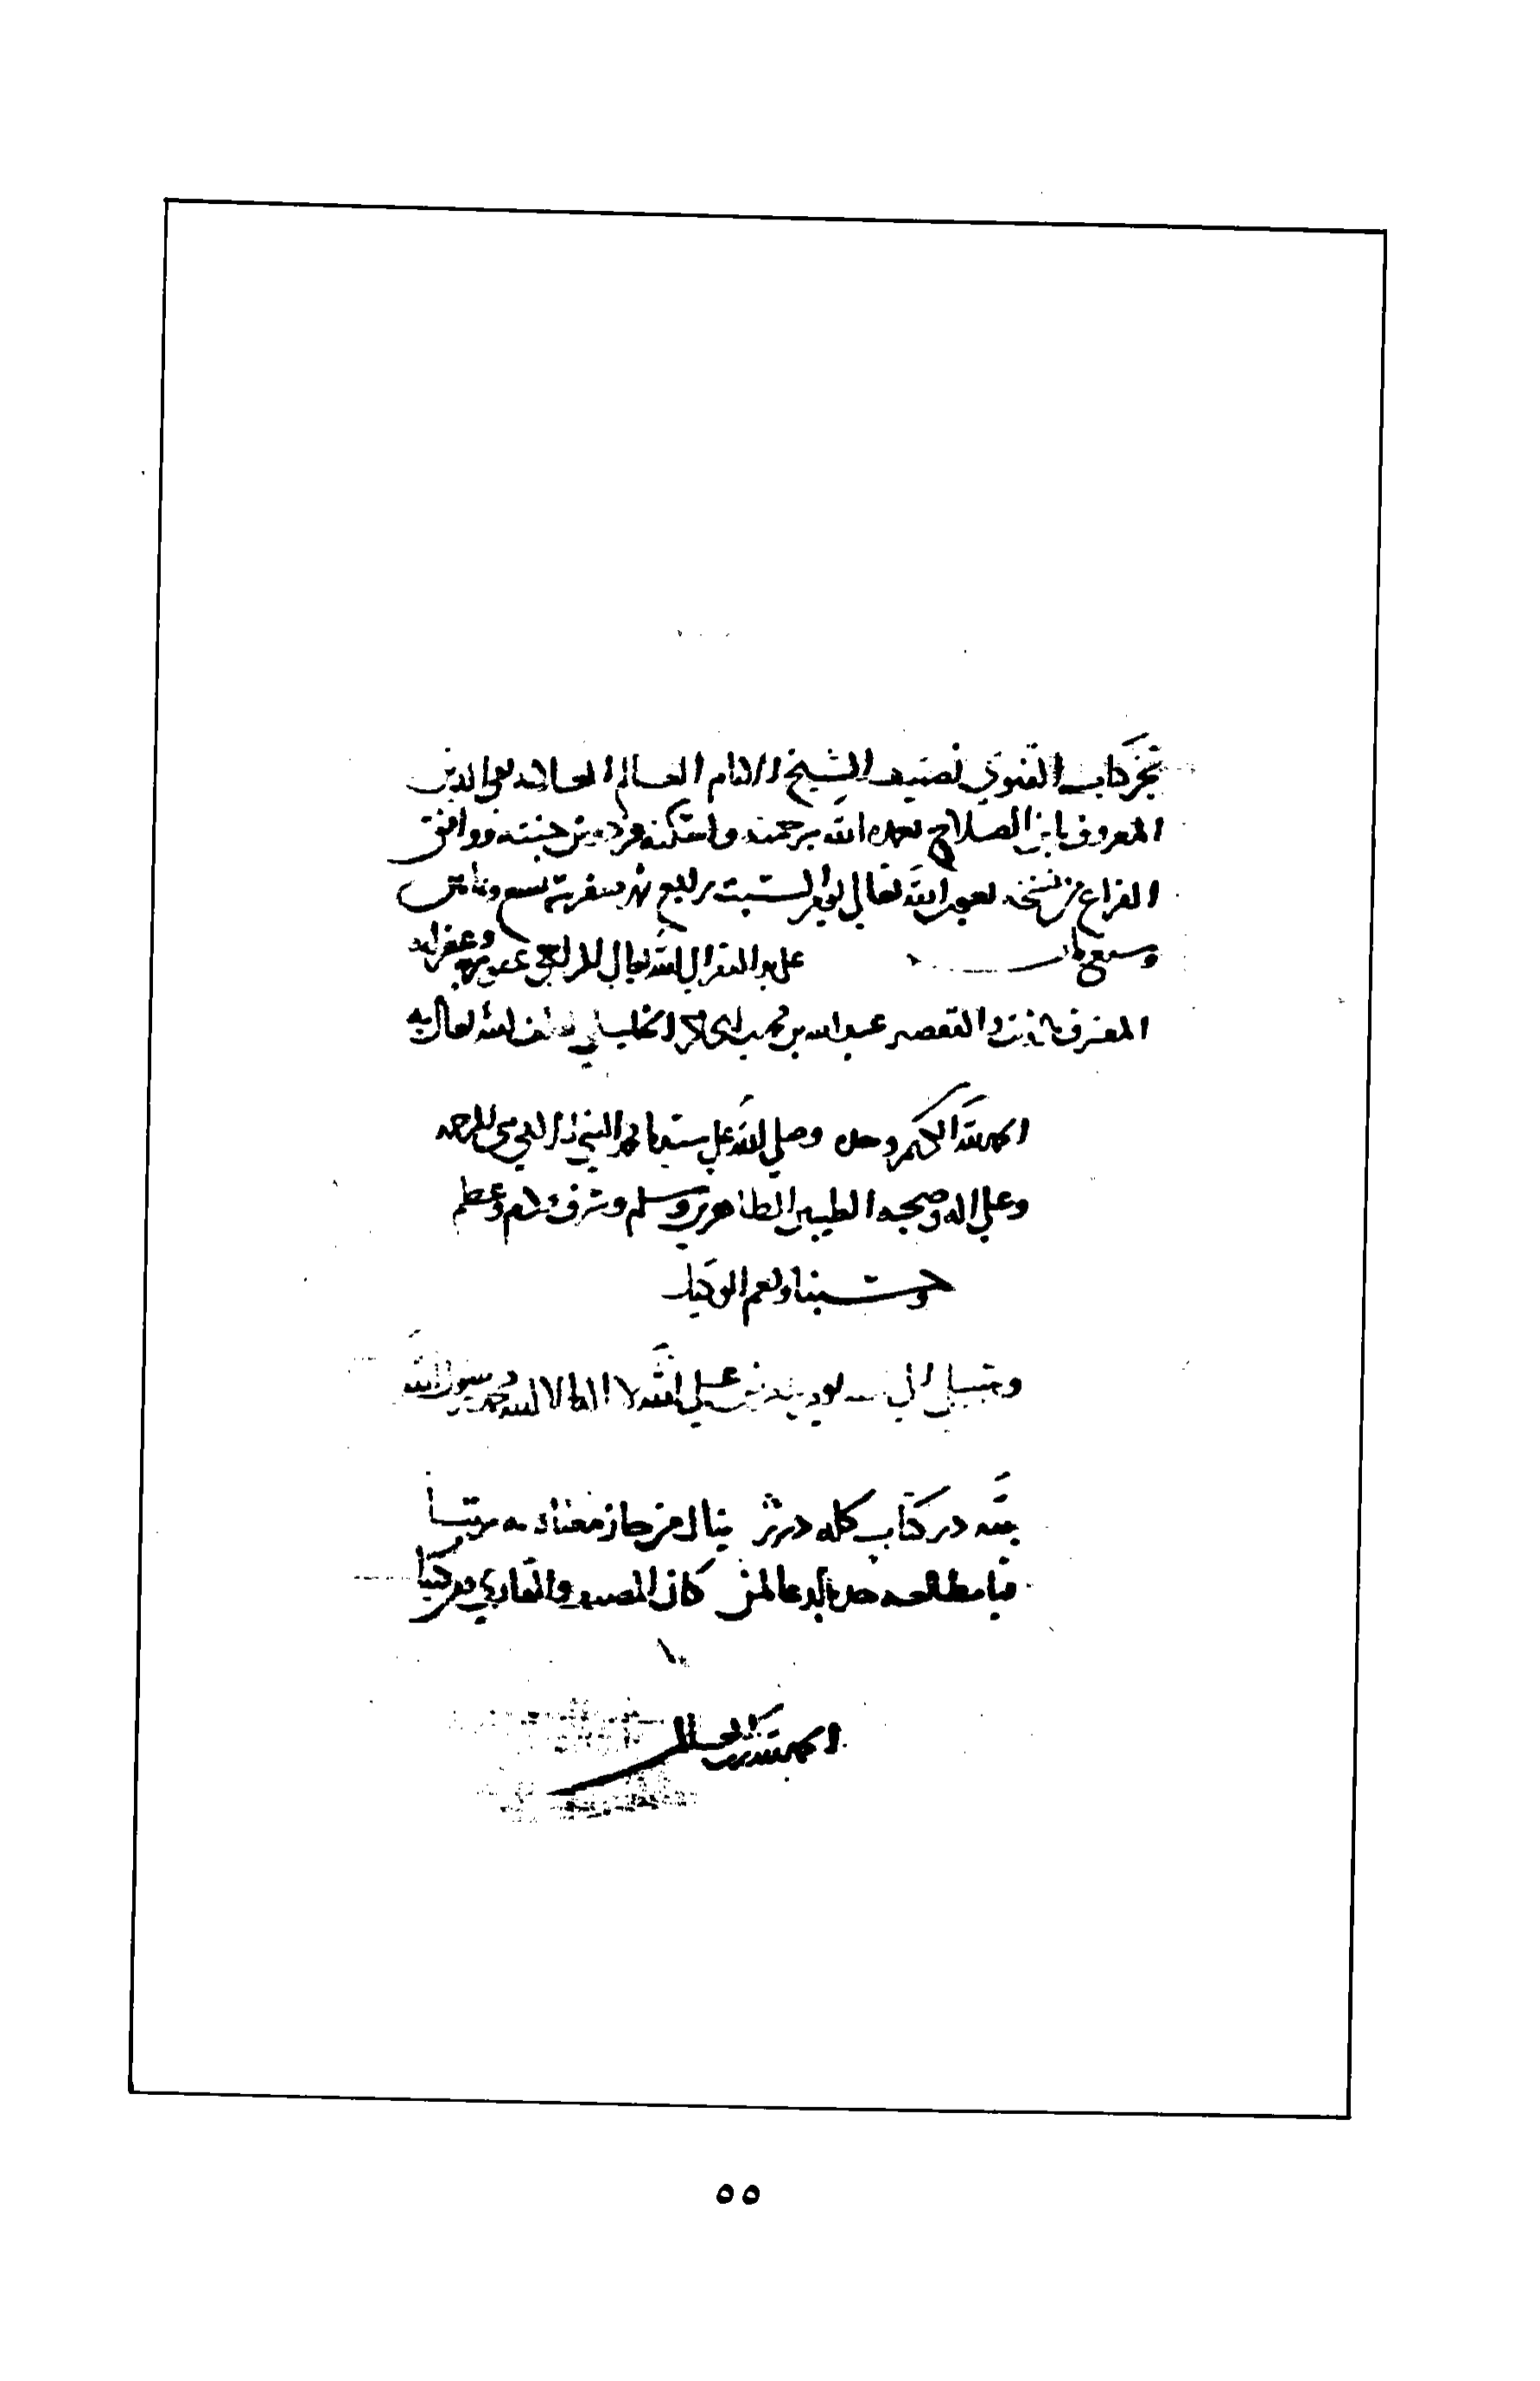 نجز كتاب الفتوى تصنيف الشيخ الامام العالم العلامه تقي الدين
المعروف بابن الصلاح تغمده الله برحمته واسكنه فردوس جنته ووافق
الفراغ من نسخه بعون الله تعالى نهار السبت رابع شهر صفر سنة تسع وثامن
وسبع مايه على يد الفقير الى الله تعالى الراجي عفو ربه وغفرانه
المعترف بالذنب والتقصير عبد الله بن محمد ابي بكر الخليلي لطف الله تعالى به
الحمد لله الكريم وحده وصلى الله على سيدنا محمد النبي الامي نبي الرحمه
وعلى اله وصحبه الطيبين الطاهرين وسلم وشرف وكرم وعظم
حسبنا ونعم الوكيل
الله لا اله الا الله محمد رسول الله
لله در كتاب كله درر ينال من حاز معناه به مرتبا
فيا مطالعه جد بالدعا لمن كان المصنف والقاري ومن كتبا
الحمد لله رب العالمين
٥٥